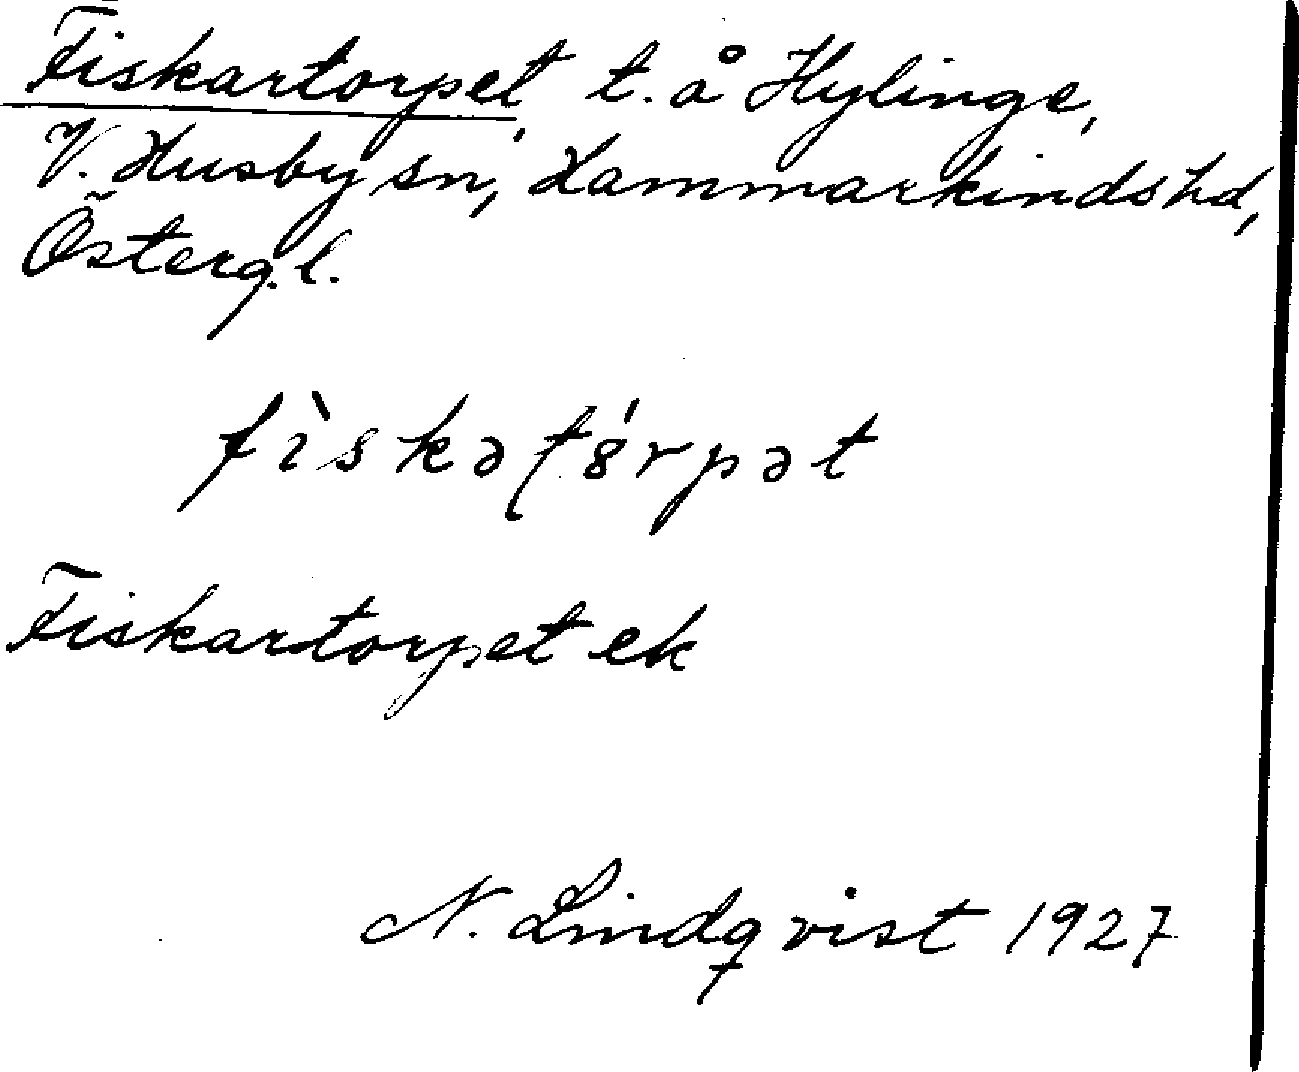 Fiskartorpet, t. å Hylinge,
V. Husby sn, Hammarkinds hd,
Österg. l.
fìskəʈȣ́rpət
Fiskartorpet ek
N. Lindqvist 1927